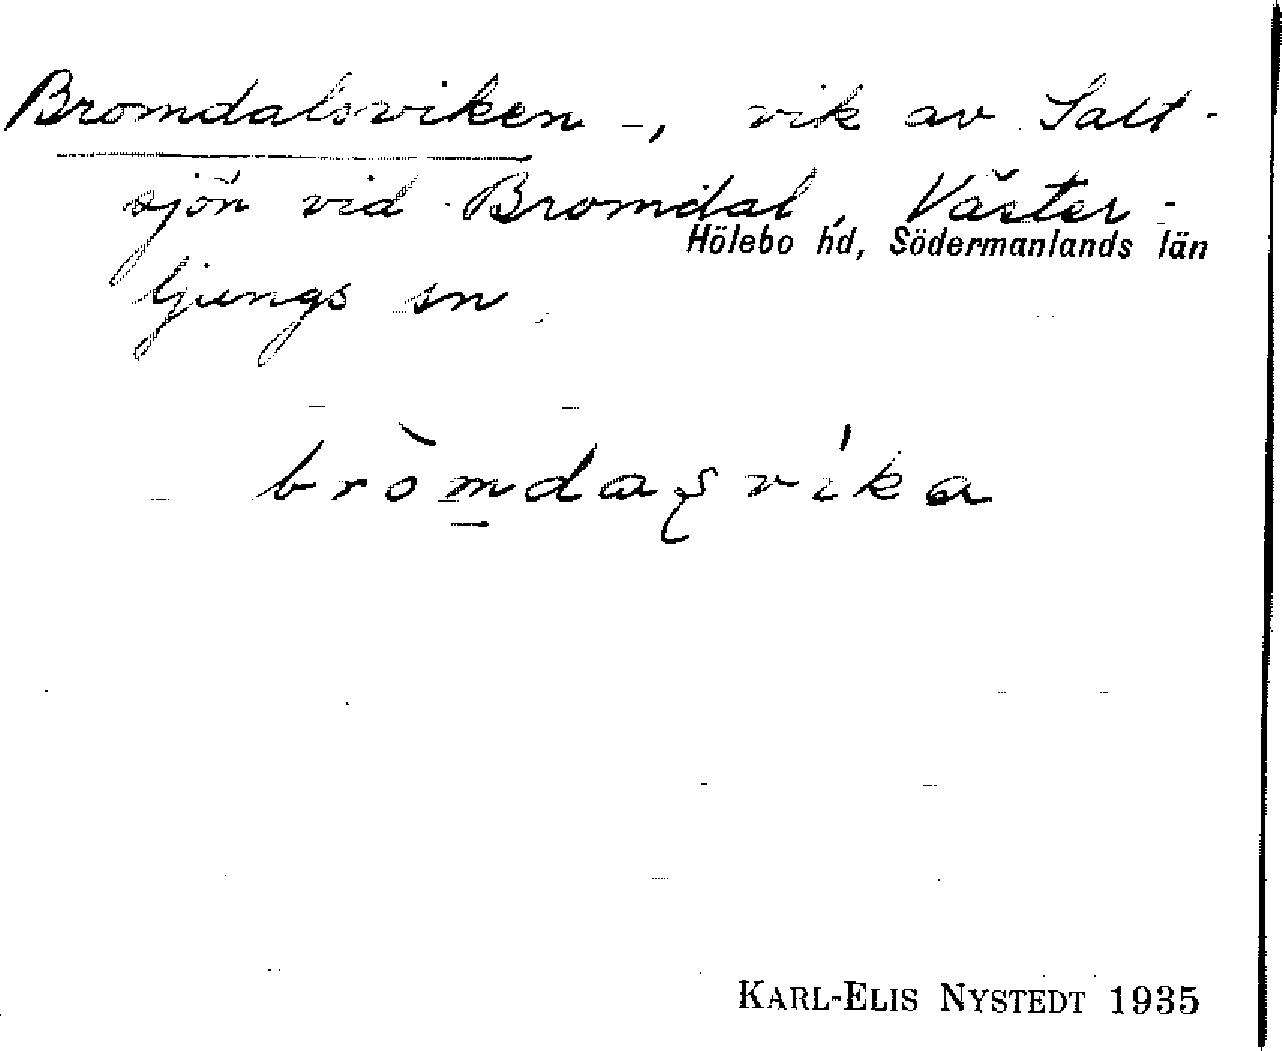 Bromdalsviken -, vik av Salt-
sjön vid Bromdal, Väster-
Hölebo hd, Södermanlands län
ljungs sn
bròmdaʂvi'ka
KARL-ELIS NYSTEDT 1935